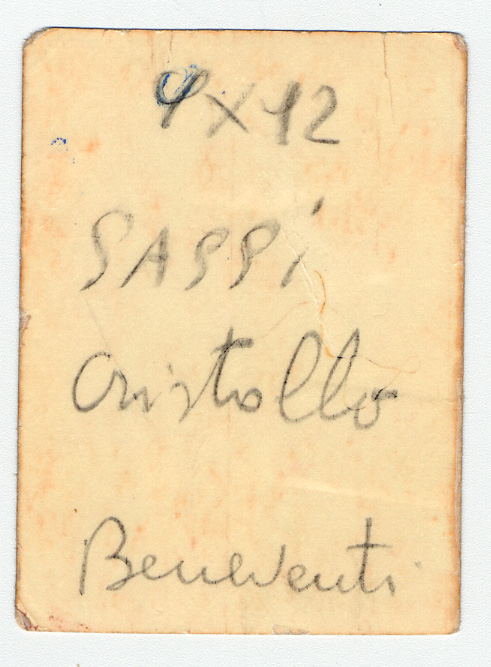 9x12
SASSI
Cristallo
Benevento